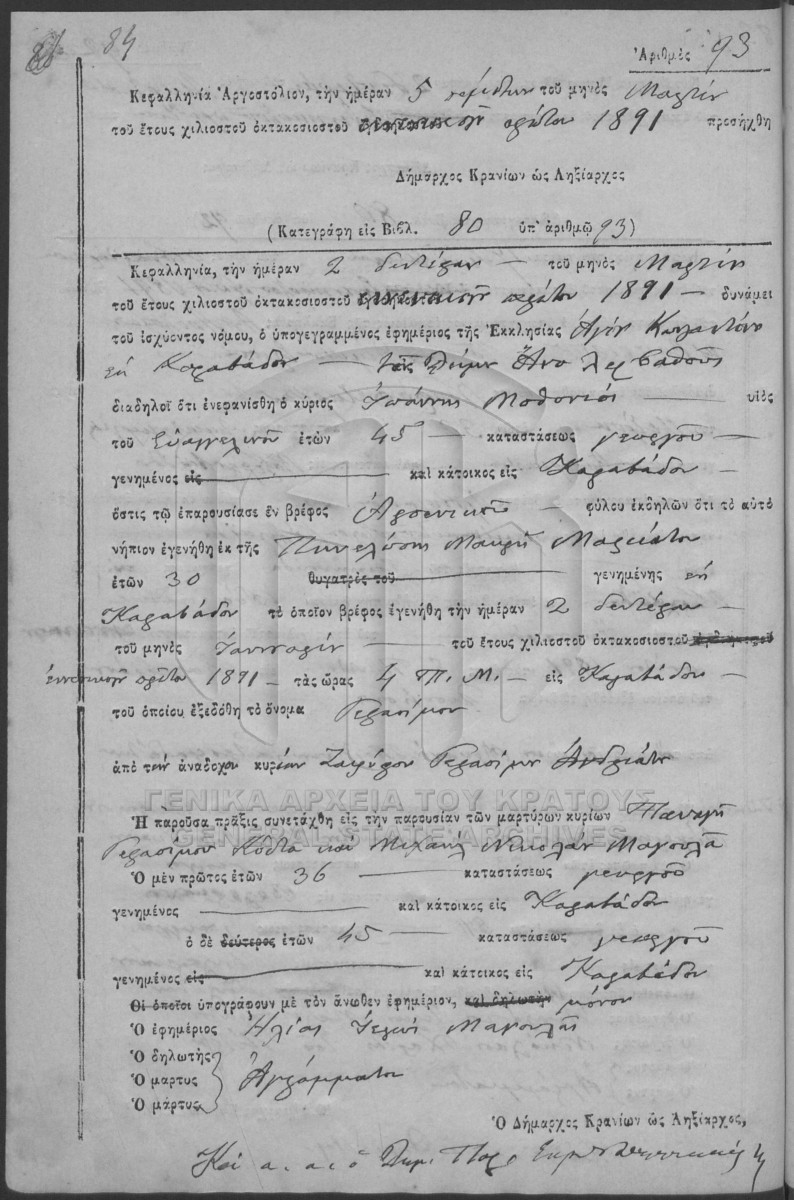 84
Ἀριθμὸς 93
Κεφαλληνία Ἀργοστόλιον, τὴν ἡμέραν 5 πέμπτην τοῦ μηνὸς Μαρτίου
τοῦ ἔτους χιλιοστοῦ ὀκτακοσιοστοῦ πρώτου 1891 προσήχθη
Δήμαρχος Κρανίων ὡς Ληξίαρχος
(Κατεγράφη εἰς Βιβλ. 80 ὑπ' ἀριθμῷ 93)
Κεφαλληνία, τὴν ἡμέραν 2 δευτέραν — τοῦ μηνὸς Μαρτίου
τοῦ ἔτους χιλιοστοῦ ὀκτακοσιοστοῦ πρώτου 1891 — δυνάμει
τοῦ ἰσχύοντος νόμου, ὁ ὑπογεγραμμένος ἐφημέριος τῆς Ἐκκλησίας Ἁγίου
Καραβάδου —
διαδηλοῖ ὅτι ἐνεφανίσθη ὁ κύριος Ἰωάννης Μοθονιός — υἱὸς
τοῦ Εὐαγγελινοῦ ἐτῶν 45 — καταστάσεως γεωργοῦ —
γενημένος εἰς — καὶ κάτοικος εἰς Καραβάδον —
ὅστις τῷ ἐπαρουσίασε ἓν βρέφος Ἀρσενικοῦ — φύλου ἐκδηλῶν ὅτι τὸ αὐτὸ
νήπιον ἐγενήθη ἐκ τῆς Πηνελόπης
ἐτῶν 30 θυγατρὸς τοῦ — γενημένης
Καραβάδον τὸ ὁποῖον βρέφος ἐγενήθη τὴν ἡμέραν 2 δευτέραν —
τοῦ μηνὸς Ἰαννουαρίου — τοῦ ἔτους χιλιοστοῦ ὀκτακοσιοστοῦ
πρώτου 1891 — τὰς ὥρας 4 Π. Μ. — εἰς Καραβάδον —
τοῦ ὁποίου ἐξεδόθη τὸ ὄνομα Γεράσιμον
ἀπὸ τὸν ἀνάδοχον κυρίον Γερασίμου
ΓΕΝΙΚΑ ΑΡΧΕΙΑ ΤΟΥ ΚΡΑΤΟΥΣ
Ἡ παροῦσα πρᾶξις συνετάχθη εἰς τὴν παρουσίαν τῶν μαρτύρων κυρίων Παναγῆ
GENERAL STATE ARCHIVES
Γερασίμου Κόστα καὶ Μιχαήλ Νικολάου Μαγουλᾶ
Ὁ μὲν πρῶτος ἐτῶν 36 — καταστάσεως γεωργοῦ
γενημένος — καὶ κάτοικος εἰς Καραβάδον
ὁ δὲ δεύτερος ἐτῶν 45 — καταστάσεως γεωργοῦ
γενημένος εἰς — καὶ κάτοικος εἰς Καραβάδον
Οἱ ὁποῖοι ὑπογράφουν μὲ τὸν ἄνωθεν ἐφημέριον, καὶ δηλωτὴν μόνον
Ὁ ἐφημέριος Ἠλίας Μαγουλᾶς
Ὁ δηλωτὴς
Ὁ μάρτυς Ἀγράμματοι
Ὁ μάρτυς
Ὁ Δήμαρχος Κρανίων ὡς Ληξίαρχος,